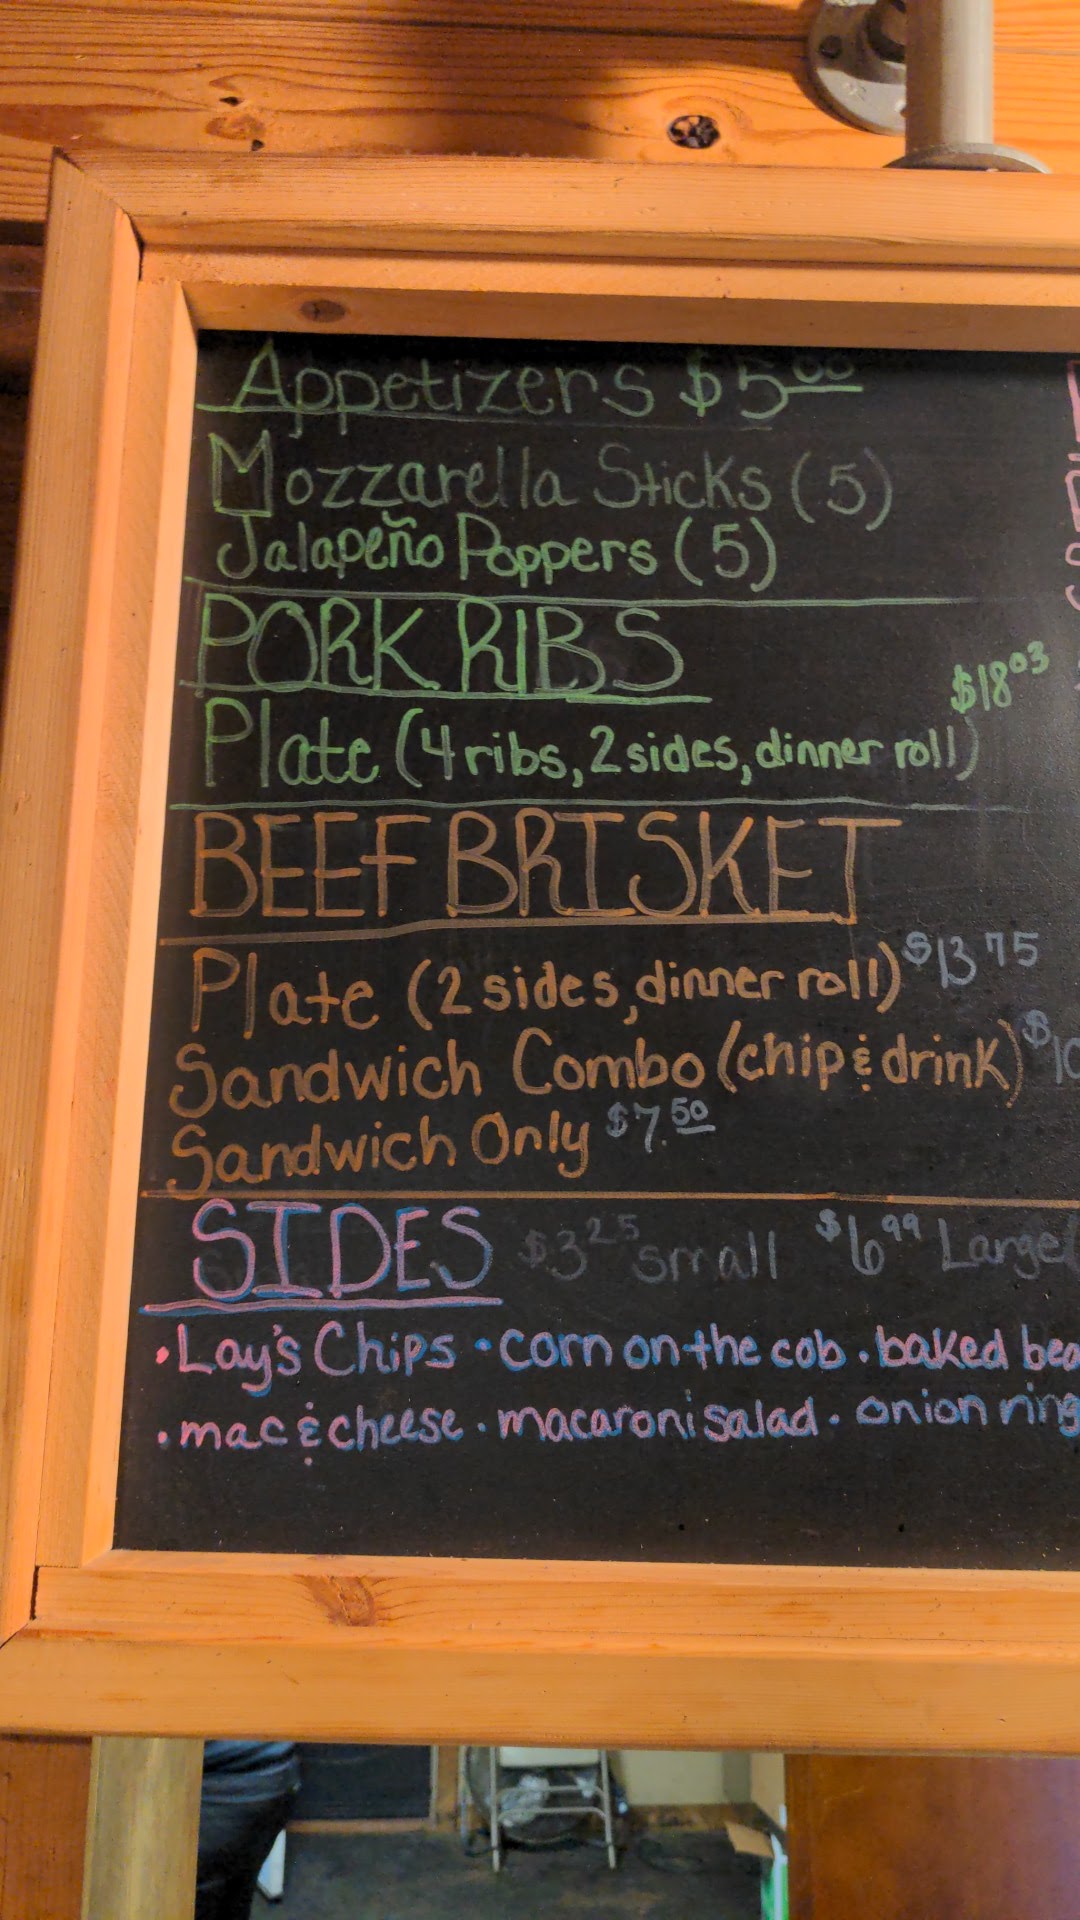 Appetizers $5.00
Mozzarella Sticks (5)
Jalapeño Poppers (5)
PORK RIBS
$18.03
Plate (4 ribs, 2 sides, dinner roll)
BEEF BRISKET
Plate (2 sides, dinner roll) $13.75
Sandwich Combo (chip & drink) $10
Sandwich Only $7.50
SIDES $3.25 small $6.99 Large
•Lay's Chips •corn on the cob •baked bea
•mac & cheese •macaroni salad •onion ring